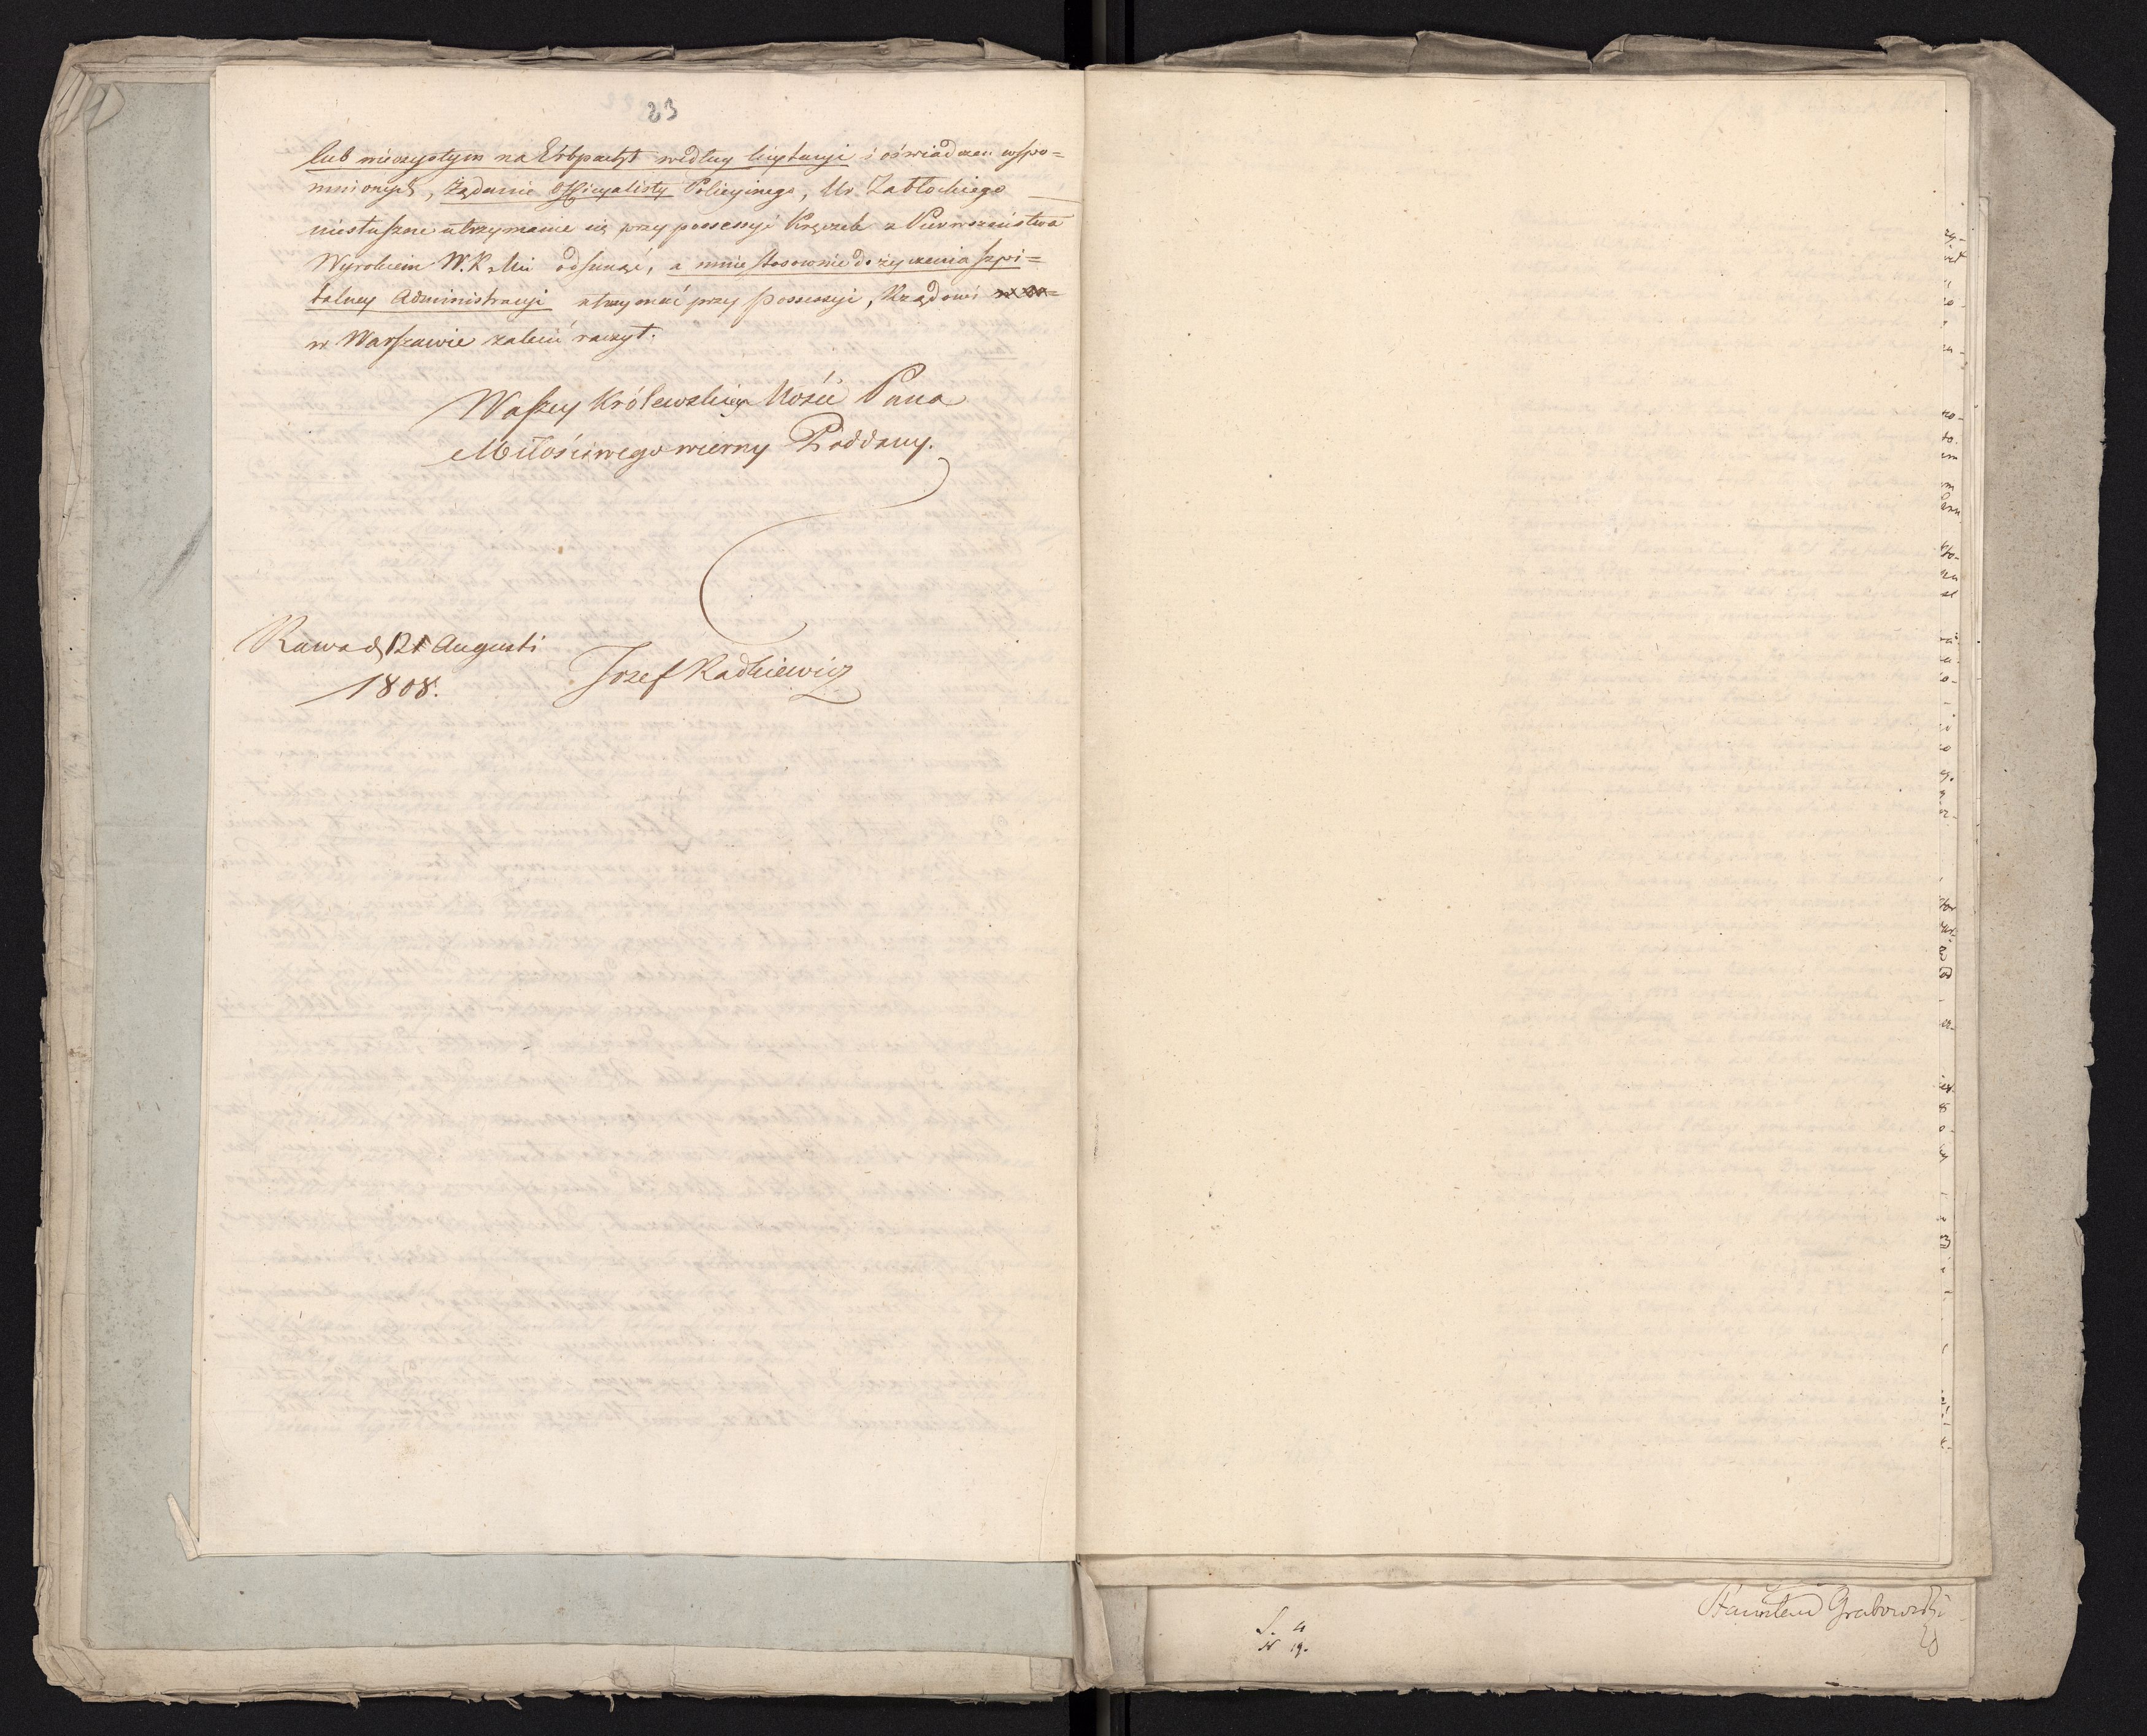 23
lub wieczystym na Erbpacht według licytacyi i oświadczeń wspo=
mnionych, żądanie Officyalisty Policyinego, Ur. Zabłockiego
niesłuszne utrzymanie się przy possessyi Kręczek z Pierwszeństwa
Wyrokiem W. K. Mci odsunąć, a mnie stosownie do życzenia szpi=
talney Administracyi utrzymać przy possessyi, Rządowi
w Warszawie zalecić raczył.
Waszey Królewskiey Mości Pana
Miłościwego wierny Poddany.
Rawa d. 21 Augusti
1808.
Jozef Radkiewicz
Stanisław Grabowski
S. 4
N 19.